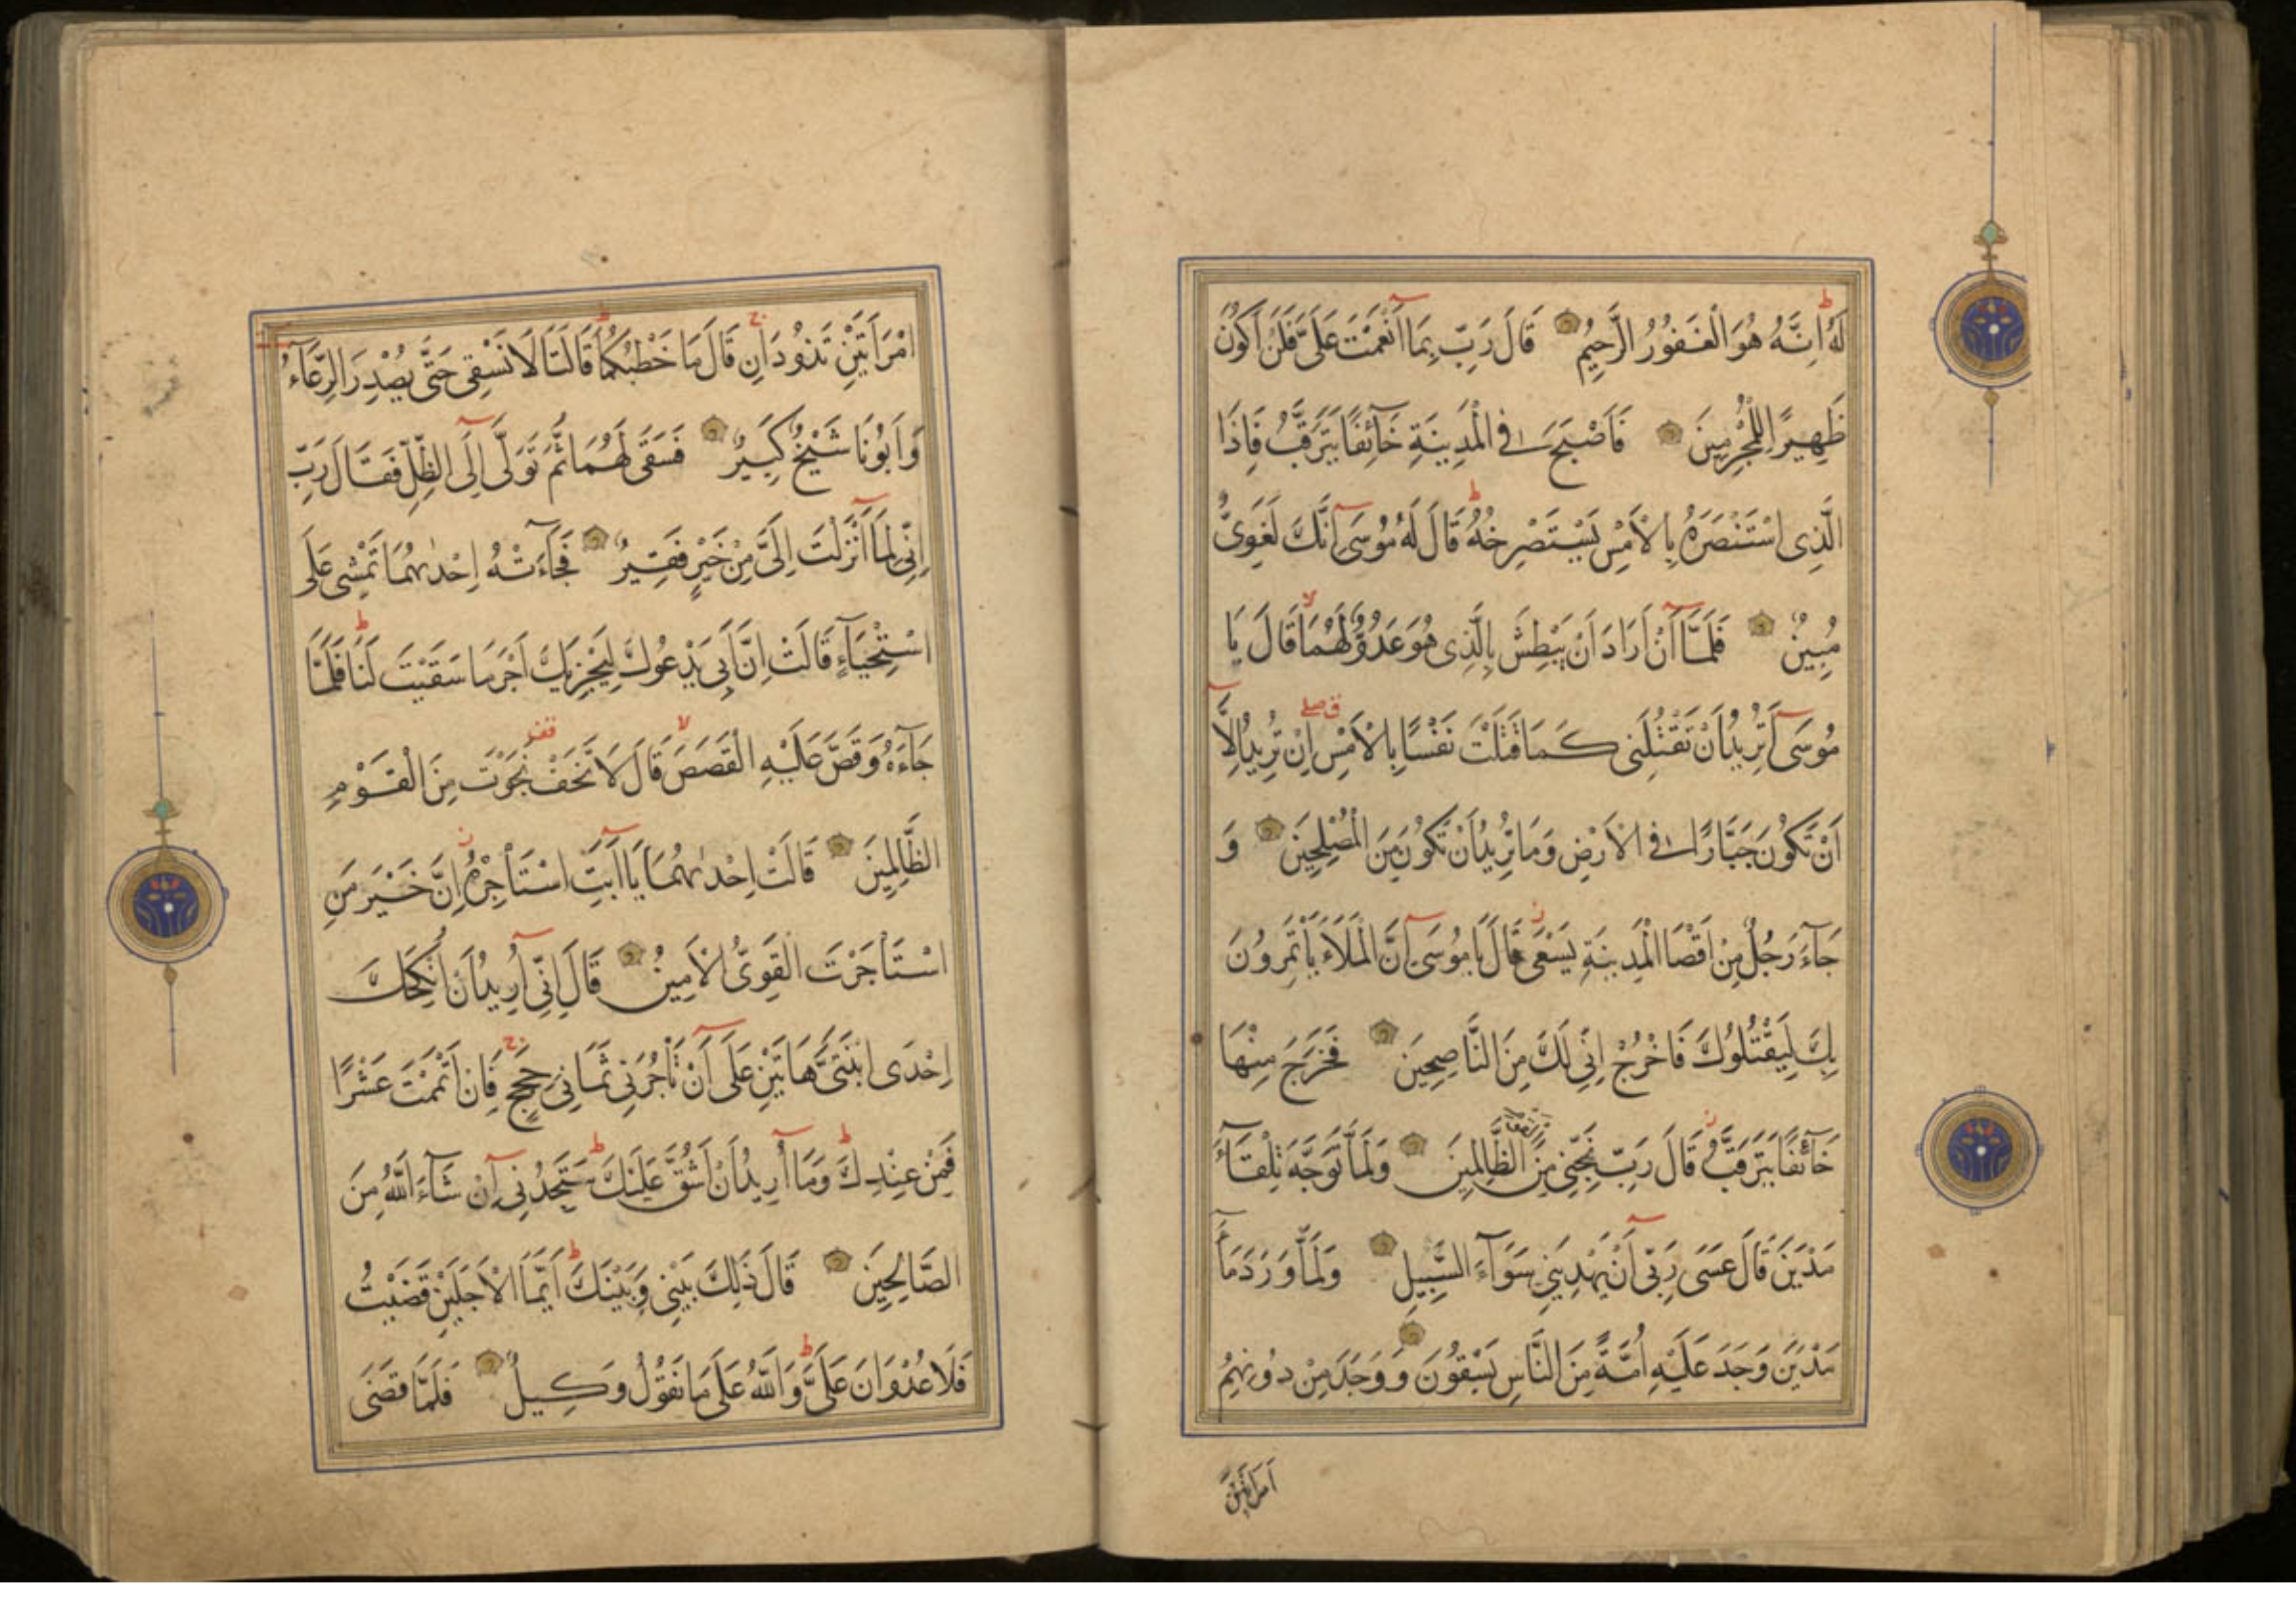 لَهُ اِنَّهُ هُوَ الْغَفُورُ الرَّحِيمُ قَالَ رَبِّ بِمَا اَنْعَمْتَ عَلَىَّ فَلَنْ اَكُونَ
ظَهِيرًا لِلْمُجْرِمِينَ فَاَصْبَحَ فِى الْمَدِينَةِ خَائِفًا يَتَرَقَّبُ فَاِذَا
الَّذِى اسْتَنْصَرَهُ بِالْاَمْسِ يَسْتَصْرِخُهُ قَالَ لَهُ مُوسَى اِنَّكَ لَغَوِىٌّ
مُبِينٌ فَلَمَّا اَنْ اَرَادَ اَنْ يَبْطِشَ بِالَّذِى هُوَ عَدُوٌّ لَهُمَا قَالَ يَا
مُوسَى اَتُرِيدُ اَنْ تَقْتُلَنِى كَمَا قَتَلْتَ نَفْسًا بِالْاَمْسِ اِنْ تُرِيدُ اِلَّا
اَنْ تَكُونَ جَبَّارًا فِى الْاَرْضِ وَمَا تُرِيدُ اَنْ تَكُونَ مِنَ الْمُصْلِحِينَ وَ
جَآءَ رَجُلٌ مِنْ اَقْصَا الْمَدِينَةِ يَسْعَى قَالَ يَا مُوسَى اِنَّ الْمَلَاَ يَاْتَمِرُونَ
بِكَ لِيَقْتُلُوكَ فَاخْرُجْ اِنِّى لَكَ مِنَ النَّاصِحِينَ فَخَرَجَ مِنْهَا
خَآئِفًا يَتَرَقَّبُ قَالَ رَبِّ نَجِّنِى مِنَ الْقَوْمِ الظَّالِمِينَ وَلَمَّا تَوَجَّهَ تِلْقَآءَ
مَدْيَنَ قَالَ عَسَى رَبِّى اَنْ يَهْدِيَنِى سَوَآءَ السَّبِيلِ وَلَمَّا وَرَدَ مَآءَ
مَدْيَنَ وَجَدَ عَلَيْهِ اُمَّةً مِنَ النَّاسِ يَسْقُونَ وَوَجَدَ مِنْ دُونِهِمُ
امْرَاَتَيْنِ
امْرَاَتَيْنِ تَذُودَانِ قَالَ مَا خَطْبُكُمَا قَالَتَا لَا نَسْقِى حَتَّى يُصْدِرَ الرِّعَآءُ
وَاَبُونَا شَيْخٌ كَبِيرٌ فَسَقَى لَهُمَا ثُمَّ تَوَلَّى اِلَى الظِّلِّ فَقَالَ رَبِّ
اِنِّى لِمَا اَنْزَلْتَ اِلَىَّ مِنْ خَيْرٍ فَقِيرٌ فَجَآءَتْهُ اِحْدٰيهُمَا تَمْشِى عَلَى
اسْتِحْيَآءٍ قَالَتْ اِنَّ اَبِى يَدْعُوكَ لِيَجْزِيَكَ اَجْرَ مَا سَقَيْتَ لَنَا فَلَمَّا
جَآءَهُ وَقَصَّ عَلَيْهِ الْقَصَصَ قَالَ لَا تَخَفْ نَجَوْتَ مِنَ الْقَوْمِ
الظَّالِمِينَ قَالَتْ اِحْدٰيهُمَا يَا اَبَتِ اسْتَاْجِرْهُ اِنَّ خَيْرَ مَنِ
اسْتَاْجَرْتَ الْقَوِىُّ الْاَمِينُ قَالَ اِنِّى اُرِيدُ اَنْ اُنْكِحَكَ
اِحْدَى ابْنَتَىَّ هَاتَيْنِ عَلَى اَنْ تَاْجُرَنِى ثَمَانِىَ حِجَجٍ فَاِنْ اَتْمَمْتَ عَشْرًا
فَمِنْ عِنْدِكَ وَمَا اُرِيدُ اَنْ اَشُقَّ عَلَيْكَ سَتَجِدُنِى اِنْ شَآءَ اللّٰهُ مِنَ
الصَّالِحِينَ قَالَ ذَلِكَ بَيْنِى وَبَيْنَكَ اَيَّمَا الْاَجَلَيْنِ قَضَيْتُ
فَلَا عُدْوَانَ عَلَىَّ وَاللّٰهُ عَلَى مَا نَقُولُ وَكِيلٌ فَلَمَّا قَضَى